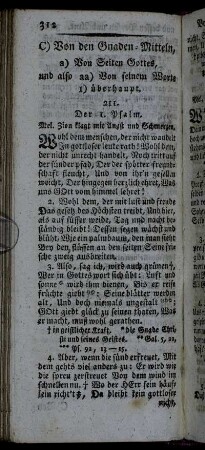 312
C) Von den Gnaden-Mitteln,
a) Von Seiten Gottes,
und also aa) Von seinem Worte
1) überhaupt.
211.
Der 1. Psalm.
Mel. Zion klagt mit Angst und Schmerzen.
Wohl dem menschen, der nicht wandelt
In gottloser leute rath! Wohl dem,
der nicht unrecht handelt, Noch tritt auf
der sünder pfad, Der der spötter freund-
schaft fleucht, Und von ihr'n
weicht, Der hingegen herzlich ehret, Was
uns GOtt vom himmel lehret!
2. Wohl dem, der mit lust und freude
Das gesetz des Höchsten treibt, Und hier,
als auf süsser weide, Tag und nacht be-
ständig bleibt! Dessen segen wächst und
blüht, Wie ein palmbaum, den man sieht
Bey den flüssen an den seiten Seine fri-
sche zweig ausbreiten.
3. Also, sag ich, wird auch grünen,
Wer in GOttes wort sich übt: Luft und
sonne wird ihm dienen, Bis er reife
früchte giebt Seine blätter werden
alt, Und doch niemals ungestalt
GOtt giebt glück zu seinen thaten, Was
er macht, muß wohl gerathen.
† in geistlicher Kraft. * die Gnade Chri-
sti und seines Geistes. ** Gal. 5, 22.
*** Ps. 92, 13-15.
4. Aber, wen die sünd erfreuet, Mit
dem gehts viel anders zu: Er wird wie
die spreu zerstreuet Von dem wind im
schnellen nu. Wo der HErr sein häuf-
lein richt't, Da bleibt kein gottloser
nicht,